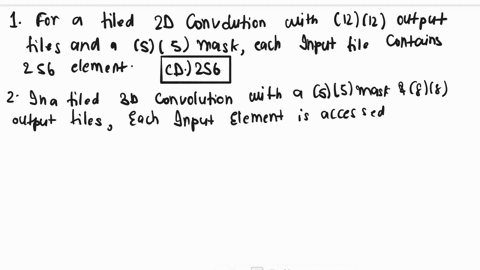 1. For a tiled 2D Convolution with (12)(12) output
tiles and a (5)(5) mask, each Input tile Contains
256 element. (D.) 256
2. In a tiled 3D Convolution with a (5)(5) mask & (8)(8)
output tiles, Each Input Element is accessed